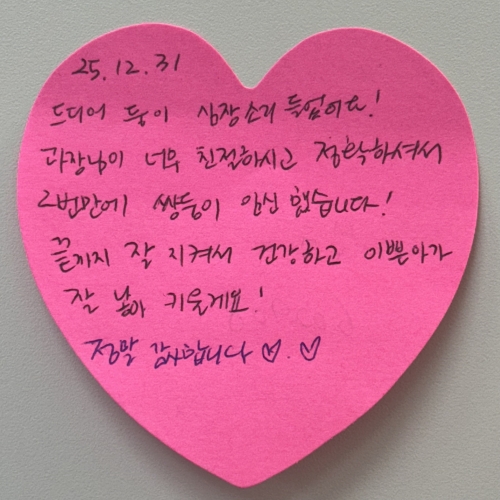 25.12.31
드디어 둥이 심장소리 들었어요!
과장님이 너무 친절하시고 정확하셔서
2번만에 쌍둥이 임신 했습니다!
끝까지 잘 지켜서 건강하고 이쁜아가
잘 낳아 키울게요!
정말 감사합니다 ♡. ♡